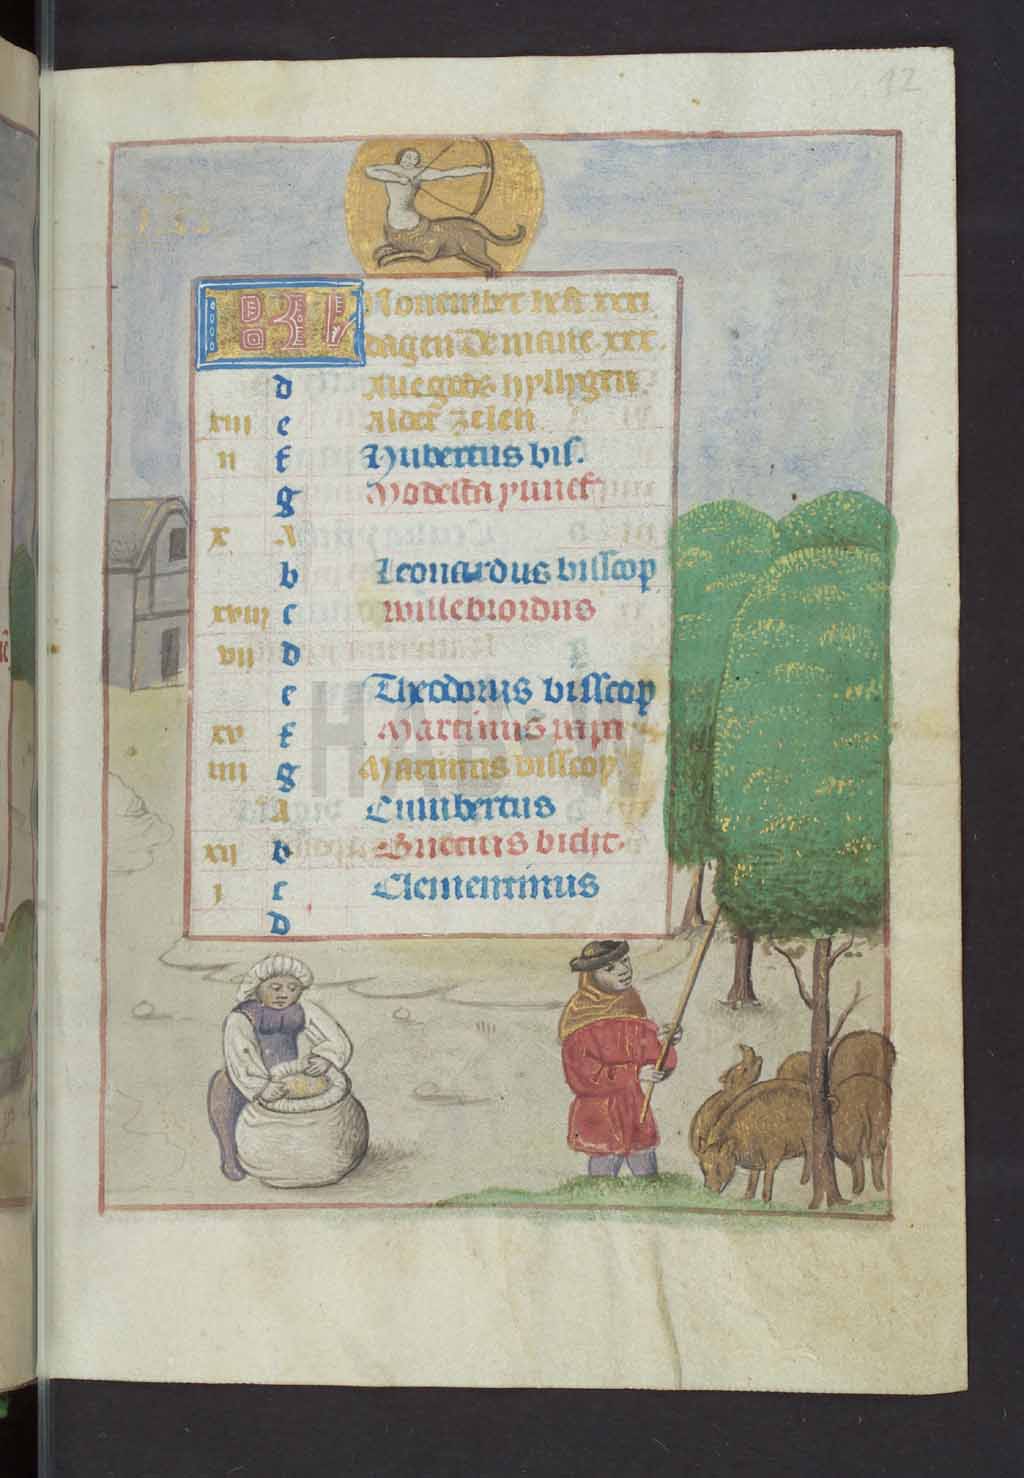 12
KL Nouember heft xxx
dagen De mane xxx.
d Alle gods hyllygen
xiii e Alder zelen
ii f Hubertus bis.
g Modesta iuncf
x A
b Leonardus bisscop
xviii c willebrordus
vii D
e Theodorus bisscop
xv f Martinus papa
iiii g Martinus bisscop
A Cunibertus
xii b Briccius bicht.
i c Clementinus
D
HAB W